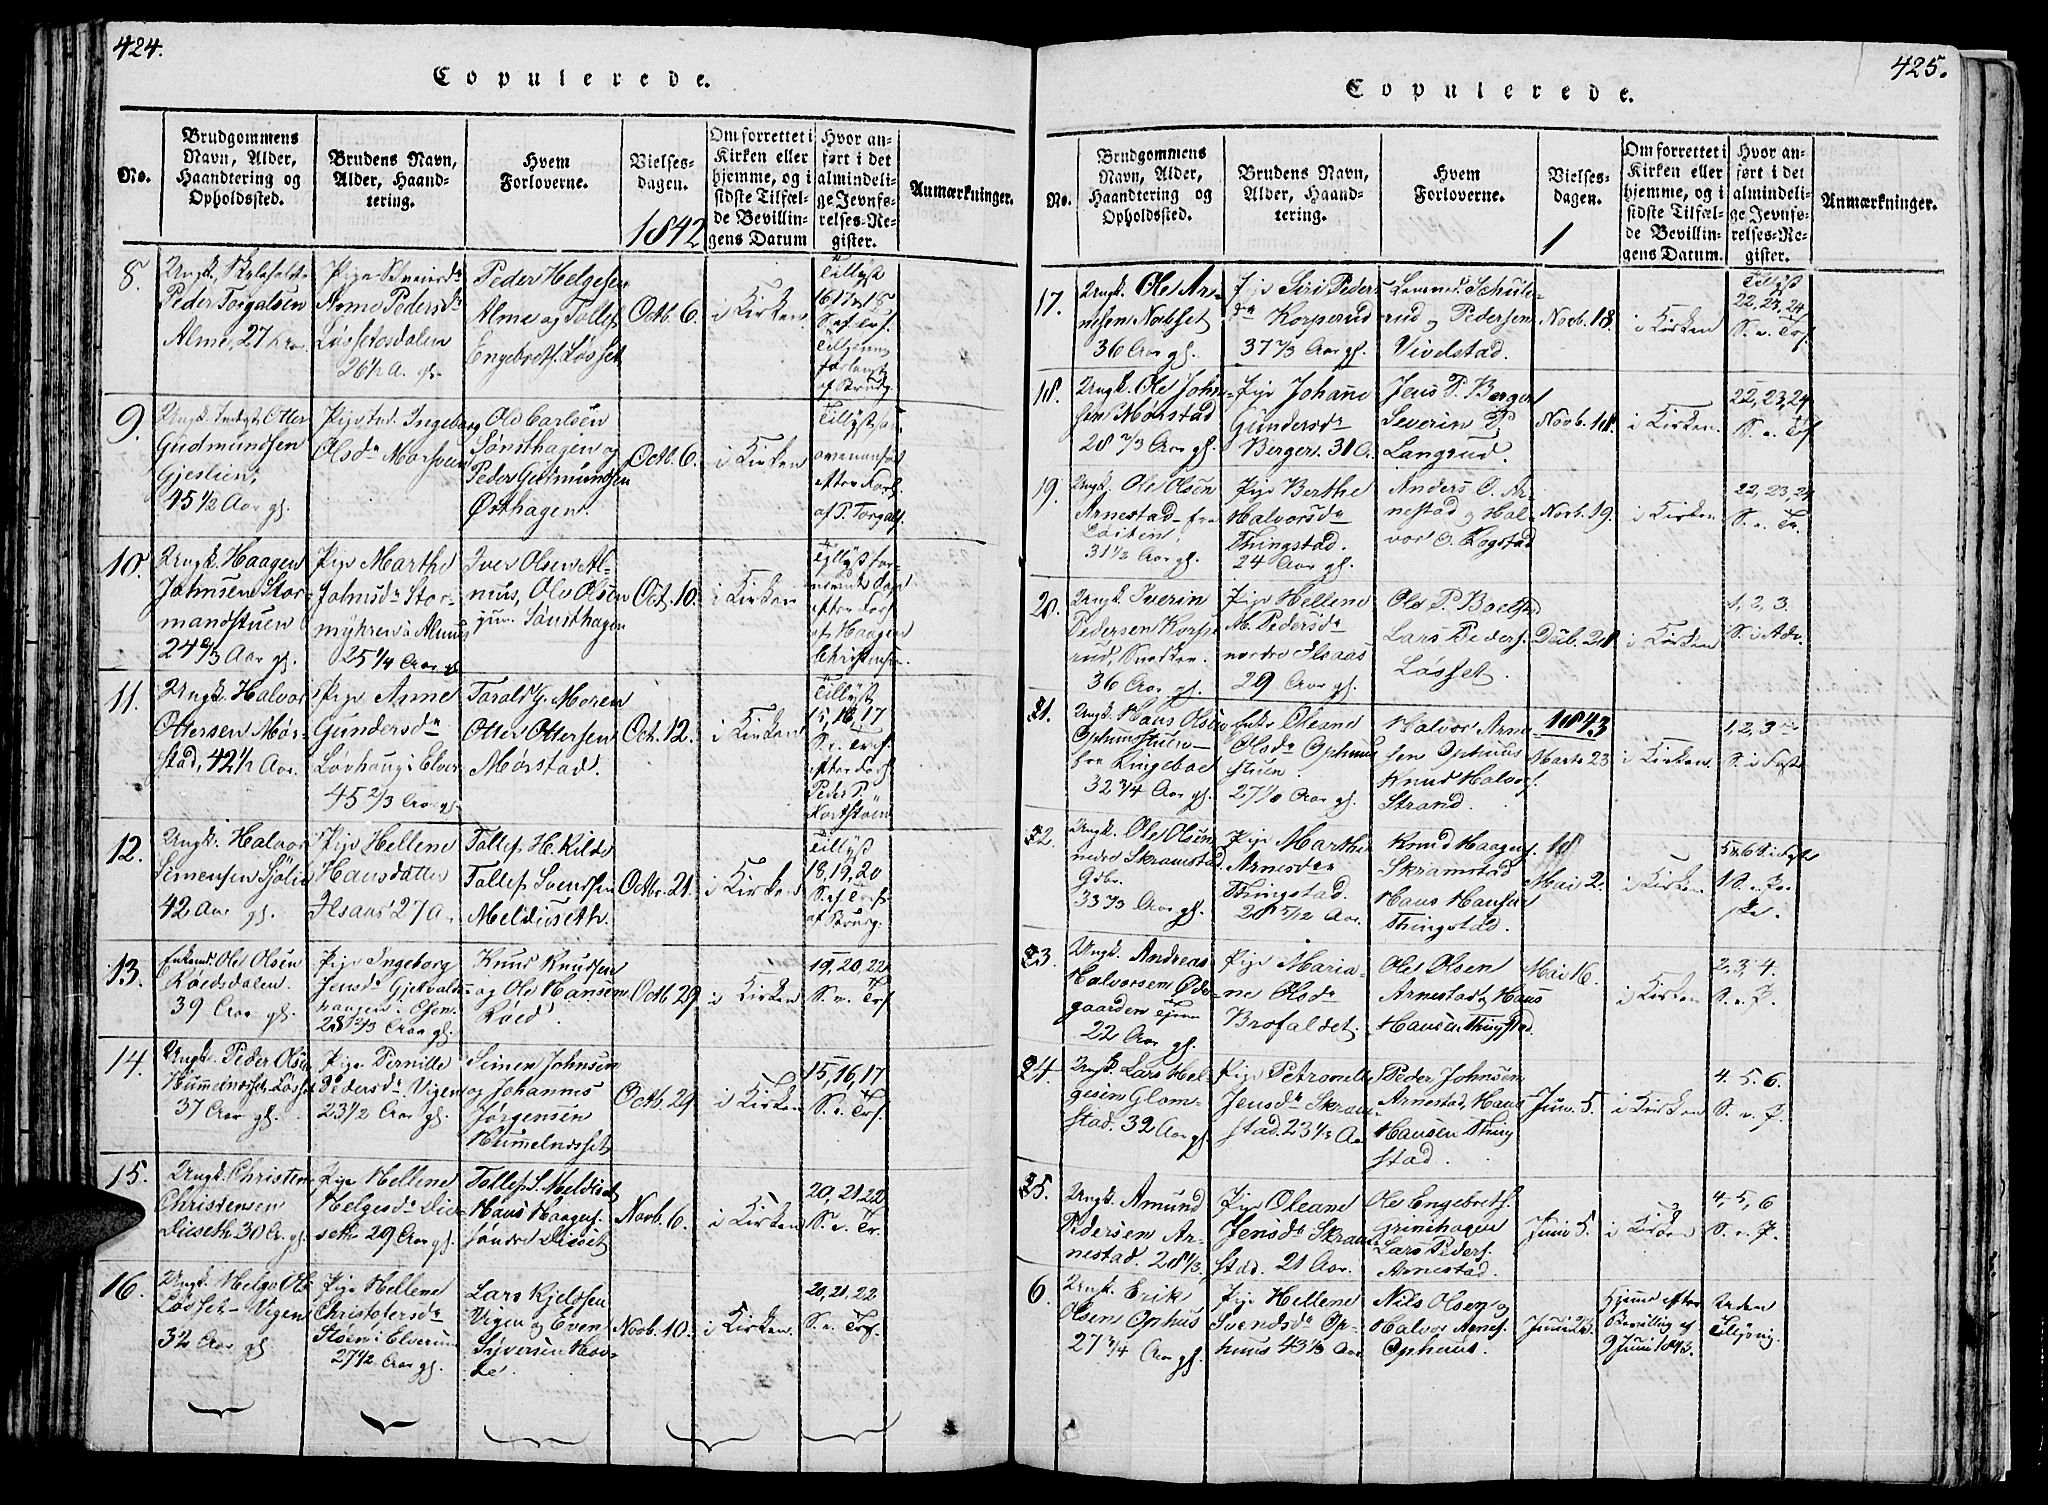 424.
Copulerede.
No.
Brudgommens
Navn, Alder,
Haandtering og
Opholdssted.
Brudens Navn,
Alder, Haand-
tering.
Hvem
Forloverne.
Vielses-
dagen.
1842
Om forrettet i
Kirken eller
hjemme, og i
sidste Tilfæl-
de Bevillin-
gens Datum
Hvor an-
ført i det
almindeli-
ge Jevnfø-
relses-Re-
gister.
Anmærkninger.
8.
Ungk.
Peder Torgalsen
Alme, 27 Aar.
Pige
Anne Pedersdr
Løssetdalen
26½ A. gl.
Peder Helgesen
Alme og Tollef
Engebretss. Løsset
Octb. 6.
i Kirken.
Tillyst
16 17 18
S. ef. Trf.
9.
Ungk. Otter
Gudmundsen
Gjeslien,
45 1/2 Aar gl.
Pige Ingeborg
Olsdr Morsveen
Ole Carlsen
Sønsthagen og
Peder Gudmundsen
Østhagen.
Octb. 6.
i Kirken
Tillyst
efter Forl.
af P. Torgals.
10.
Ungk. Haagen
Johnsen Stor-
mandstuen
24 2/3 Aar gl.
Pige Marthe
Johnsdr Stor-
myhren i Almus
25 1/4 Aar gl.
Iver Olsen Al-
mus, Ole Olsen
Sønsthagen
Oct. 10.
i Kirken
Tillyst
efter Forl
af Haagen
Christensen.
11.
Ungk. Halvor
Ottersen Mør-
stad, 42½ Aar.
Pige Anne
Gundersdr
Lovhaug i Elver
45 2/3 Aar gl.
Tarald G. Moren
Otter Ottersen
Mørstad.
Oct. 12.
i Kirken
Tillyst
15, 16, 17
S. ef Tref
efter Forl
Peder P.
12.
Ungk. Halvor
Simensen Sjölie
42 Aar gl.
Pige Hellene
Hansdatter
Ilsaas 27 A.
Tollef H. Kilde
Tollef Svendsen
Meldieseth.
Octbr. 21.
i Kirken
Tillyst
18, 19, 20
S. ef Tref
13.
Enkemd. Ole Olsen
Roedsdalen.
39 Aar gl.
Pige Ingeborg
Jensdr
28 2/3 Aar gl.
Knud Knudsen
og Ole Hansen
Röed.
Octb 29.
i Kirken
19, 20, 22
S. e. Tref.
14.
Ungk. Peder Olsen
Hummelnæsset Løsset
37 Aar gl.
Pige Pernille
Pedersdr Vigen
23 1/2 Aar gl.
Simen Johnsen
og Johannes
Jørgensen
Hummelnæsset
Octb. 29.
i Kirken
15, 16, 17
S. e. Tref.
15.
Ungk. Christen
Christensen
Diseth 30 A. gl.
Pige Hellene
Helgesdr Die
seth 29 Aar gl.
Tollef S. Meldiset
Hans Haagens.
søndre Dieset
Novb. 6.
i Kirken
20, 21, 22
S. e. Tr.
16.
Ungk. Helge Ols
Løsset Vigen
32 Aar gl.
Pige Hellene
Christofersdr
Støen i Elverum
27 1/2 Aar gl.
Lars Kjelssen
Vigen og Even
Syversen Hov-
de.
Novb. 10.
i Kirken.
20, 21, 22
S. e. Tref.
425.
Copulerede.
No.
Brudgommens
Navn, Alder,
Haandtering og
Opholdssted.
Brudens Navn,
Alder, Haand-
tering.
Hvem
Forloverne.
Vielses-
dagen.
1
Om forrettet i
Kirken eller
hjemme, og i
sidste Tilfæl-
de Bevillin-
gens Datum.
Hvor an-
ført i det
almindeli-
ge Jevnfø-
relses-Re-
gister.
Anmærkninger.
17.
Ungk. Ole Ar-
nesen Norbset
36 Aar gl.
Pige Siri Peders
dr Korperud
37 2/3 Aar gl.
Schule-
rud og Pedersen
Vivelstad.
Novb. 18.
i Kirken
Tillyst
22, 23, 24
S. e. Tref.
18.
Ungk. Ole John-
sen Mørstad
28 2/3 Aar gl.
Pige Johane
Gundersdr
Berger. 31 A.
Jens P. Berger
Severin P.
Langrud.
Novb. 18.
i Kirken.
22, 23, 24
S. e. Tref
19.
Ungk. Ole Olsen
Arnestad fra
Løiten.
31 1/2 Aar gl.
Pige Berthe
Halvorsdr
Thingstad.
24 Aar gl.
Anders O. Ar-
nestad og Hal-
vor O. Kogstad
Novb. 19.
i Kirken
22, 23, 24
S. e. Tr.
20.
Ungk. Iverin
Pedersen Korpe
rud, Snedker.
36 Aar gl.
Pige Hellene
M. Pedersdr
nordre Ilsaas
29 Aar gl.
Ole P. Bolstad
Lars Peders.
Løsset.
Decb. 28
i Kirken
1, 2, 3.
S. i Adv.
21.
Ungk. Hans Olsen
Ophusstuen
fra Ringeboe
32 3/4 Aar gl.
Enke Oleane
Olsdr Ophuus
stuen.
27 1/8 Aar gl.
Halvor Arne-
sen Ophuus
Knud Halvors.
Strand.
1843
Marts 23
i Kirken.
1, 2, 3
S. i Faste
22.
Ungk. Ole Olsen
nedre Skramstad
Gdbr.
33 1/3 Aar gl.
Pige Marthe
Arnesdr
Thingstad.
28 5/12 Aar.
Knud Haagens.
Skramstad
Hans Hansen
Thingstad.
18
Mai 2.
i Kirken
5 & 6 S. i Fast
1 S. e. Paa-
ske.
23.
Ungk. Andreas
Halvorsen Øde-
gaarden
22 Aar gl.
Pige Maria-
ne Olsdr
Brofaldet.
Ole Olsen
Arnestad & Hans
Hansen Thingstad.
Mai 16.
i Kirken
2, 3, 4.
S. e. P.
24.
Ungk. Lars Hel-
gesen Glom-
stad. 32 Aar gl.
Pige Petronelle
Jensdr Skram-
stad. 23 1/2 Aar
Peder Johnsen
Arnestad, Hans
Hansen Thing
stad.
Juni 5.
i Kirken
4. 5. 6.
S. e. P.
25.
Ungk. Amund
Pedersen Ar-
nestad. 28 1/3.
Pige Oleane
Jensdr Skram
stad. 21 Aar.
Ole Engebrets.
Grinehagen
Lars Peders.
Arnestad.
Juni 5.
i Kirken
4, 5, 6
S. e. P.
6.
Ungk. Erik
Olsen Ophus
27 3/4 Aar gl.
Pige Hellene
Svendsdr Op-
huus 43 1/3 Aar
Nils Olsen og
Halvor Arnes.
Ophuus.
Juni 23.
Hjemme efter
Bevilling af
9 Juni 1843.
Uden
Tillysning.